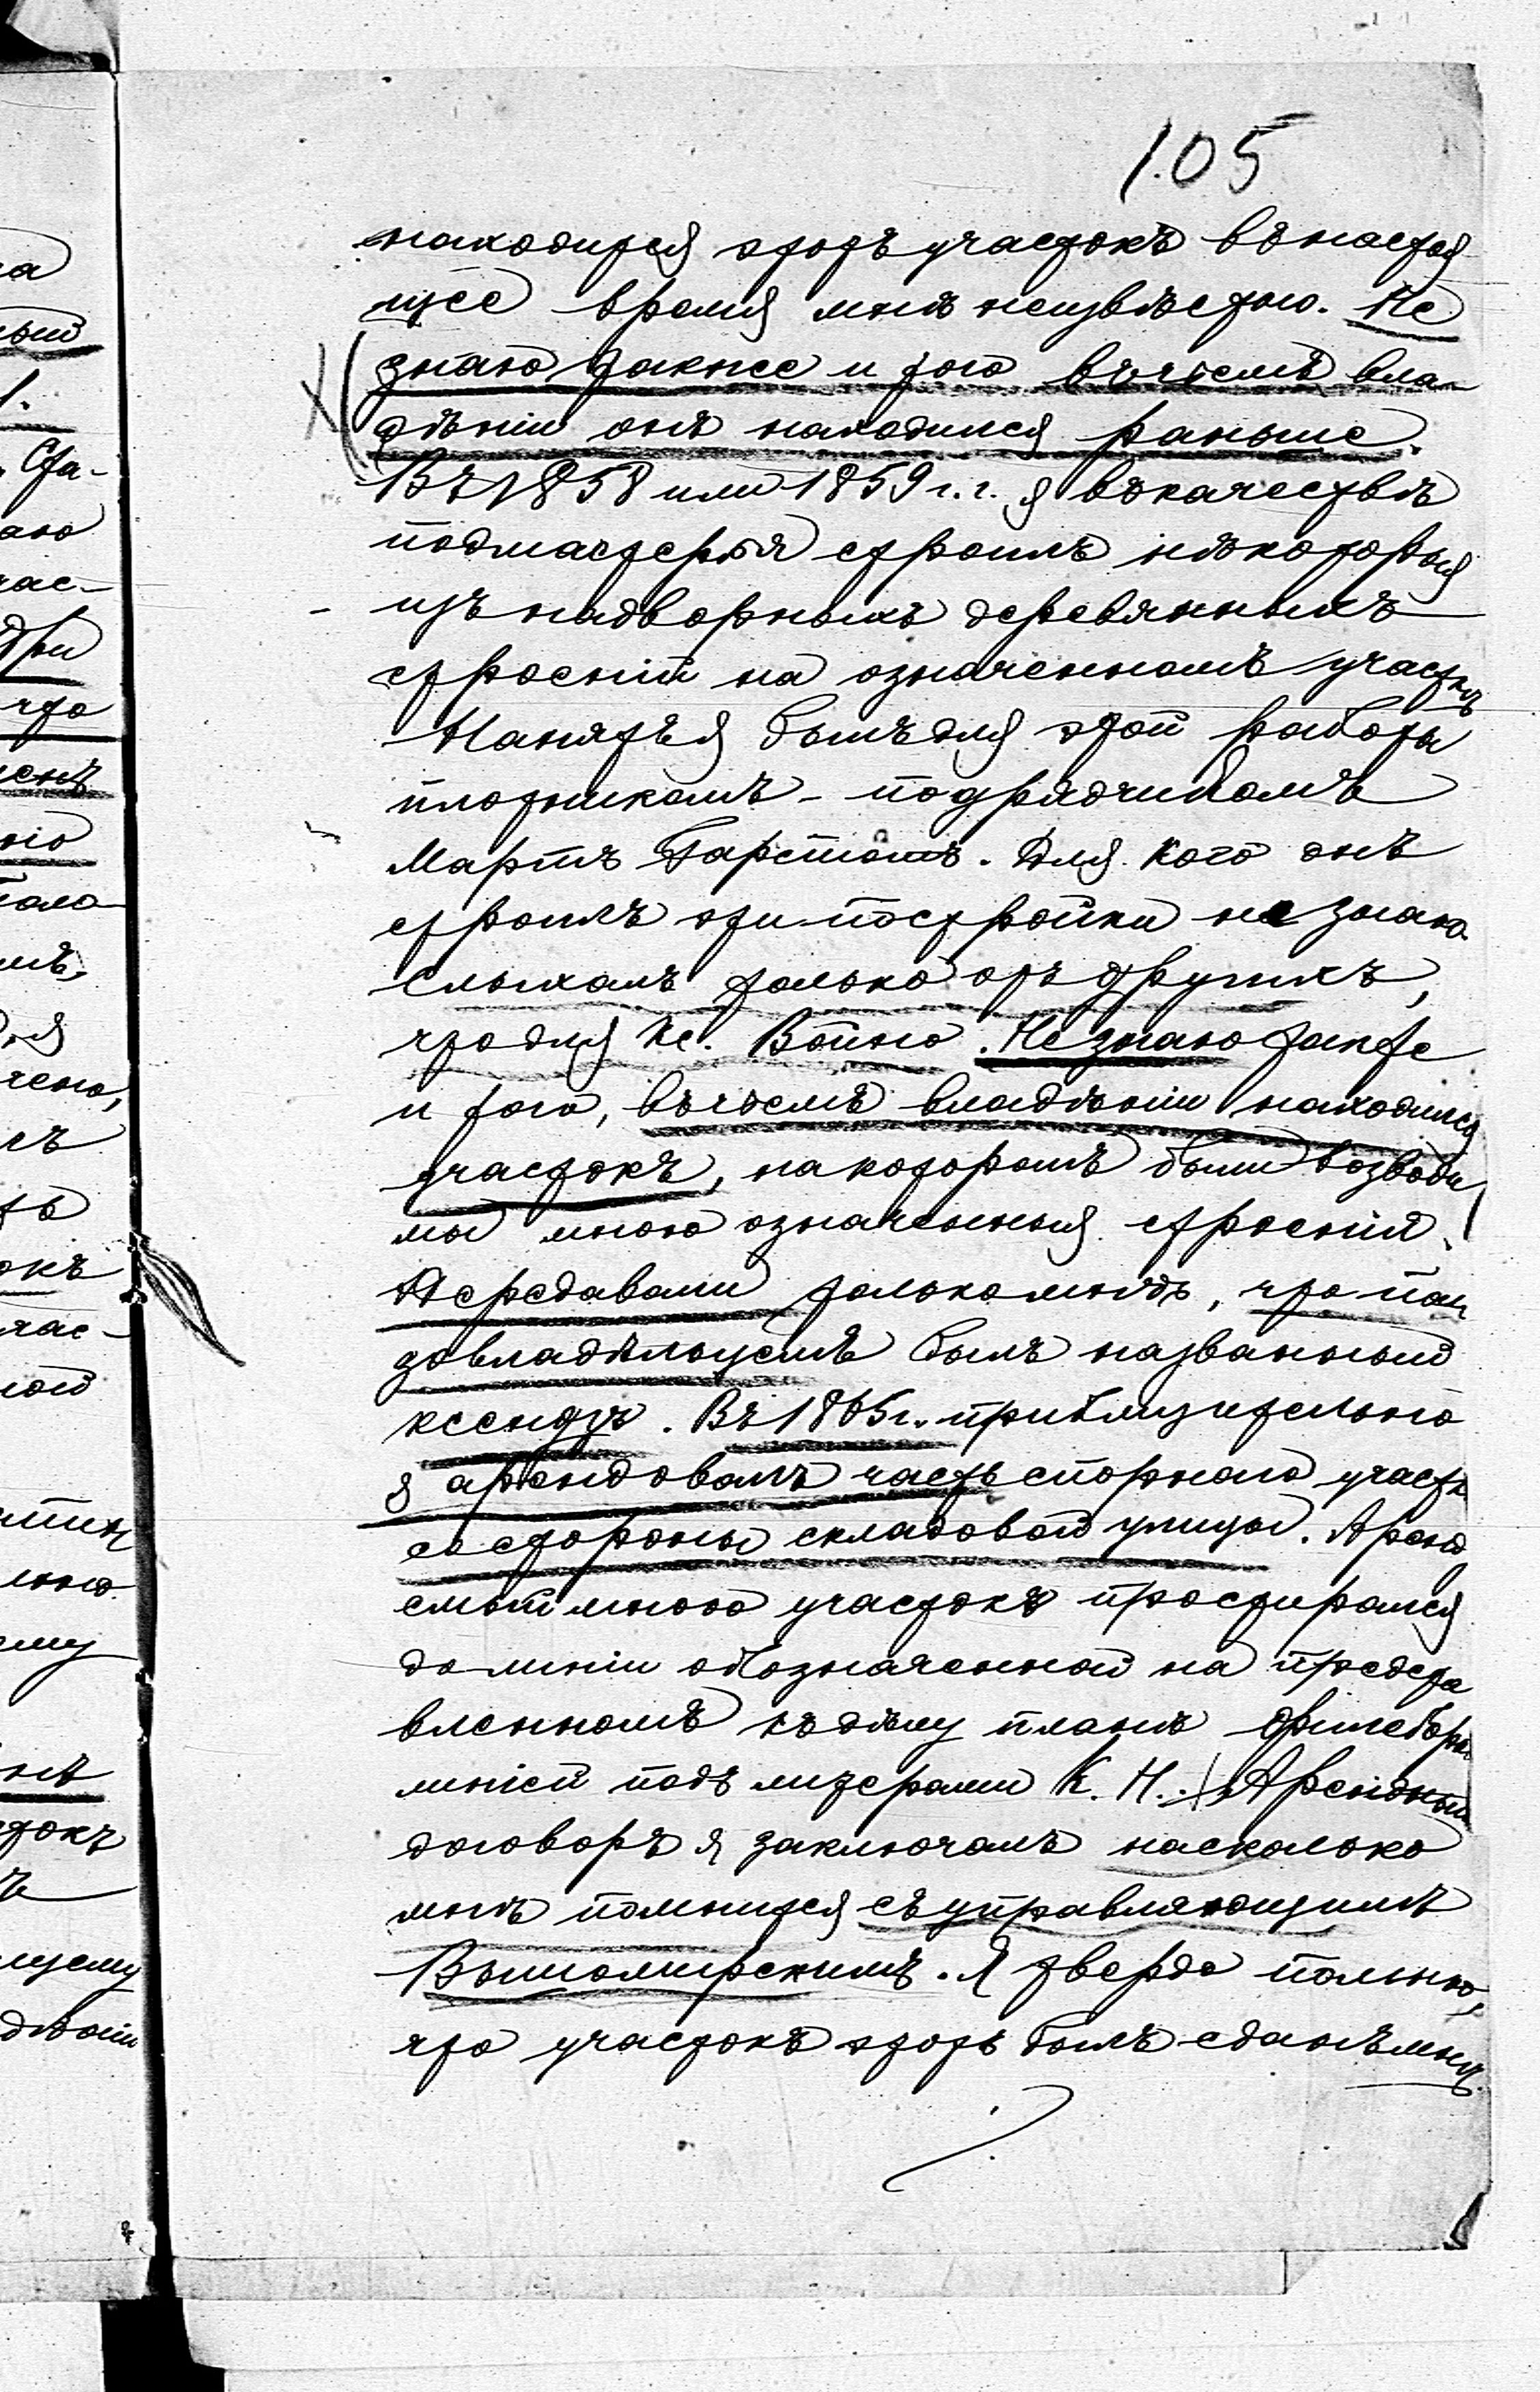 105
находится этотъ участокъ въ настоя
щее время мнѣ неизвѣстно. Не
знаю также и того въ чьемъ вла-
дѣніи онъ находился раньше.
Въ 1858 или 1859 г.г. я въ качествѣ
подмастерья строилъ нѣкоторыя
изъ надворныхъ деревянныхъ
строеній на означенномъ участкѣ
Нанятъ я былъ для этой работы
плотникомъ - подрядчикомъ
Мартъ . Для кого онъ
строилъ эти постройки не знаю
слыхалъ только отъ другихъ,
что для Кс. Войно. Не знаю также
и того, въ чьемъ владѣніи находился
участокъ, на которомъ были возводи
мы мною означенныя строенія.
Передавали только мнѣ, что
зовладѣльцемъ былъ названный
ксендзъ. Въ 1865 г. приблизительно
я арендовалъ часть спорнаго участк
со стороны складовой улицы. Аренд
емый мною участокъ простирался
до линіи обозначенной на предста
вленномъ къ дѣлу планѣ
линіей подъ литерами К. Н. Арендный
договоръ я заключалъ насколько
мнѣ помнится съ управляющимъ
. Я твердо помню,
что участокъ этотъ былъ сданъ мнѣ
а
ный
1.
Ста-
аю
час-
три
что
ною
окъ
час-
ной
ему
токъ
щему